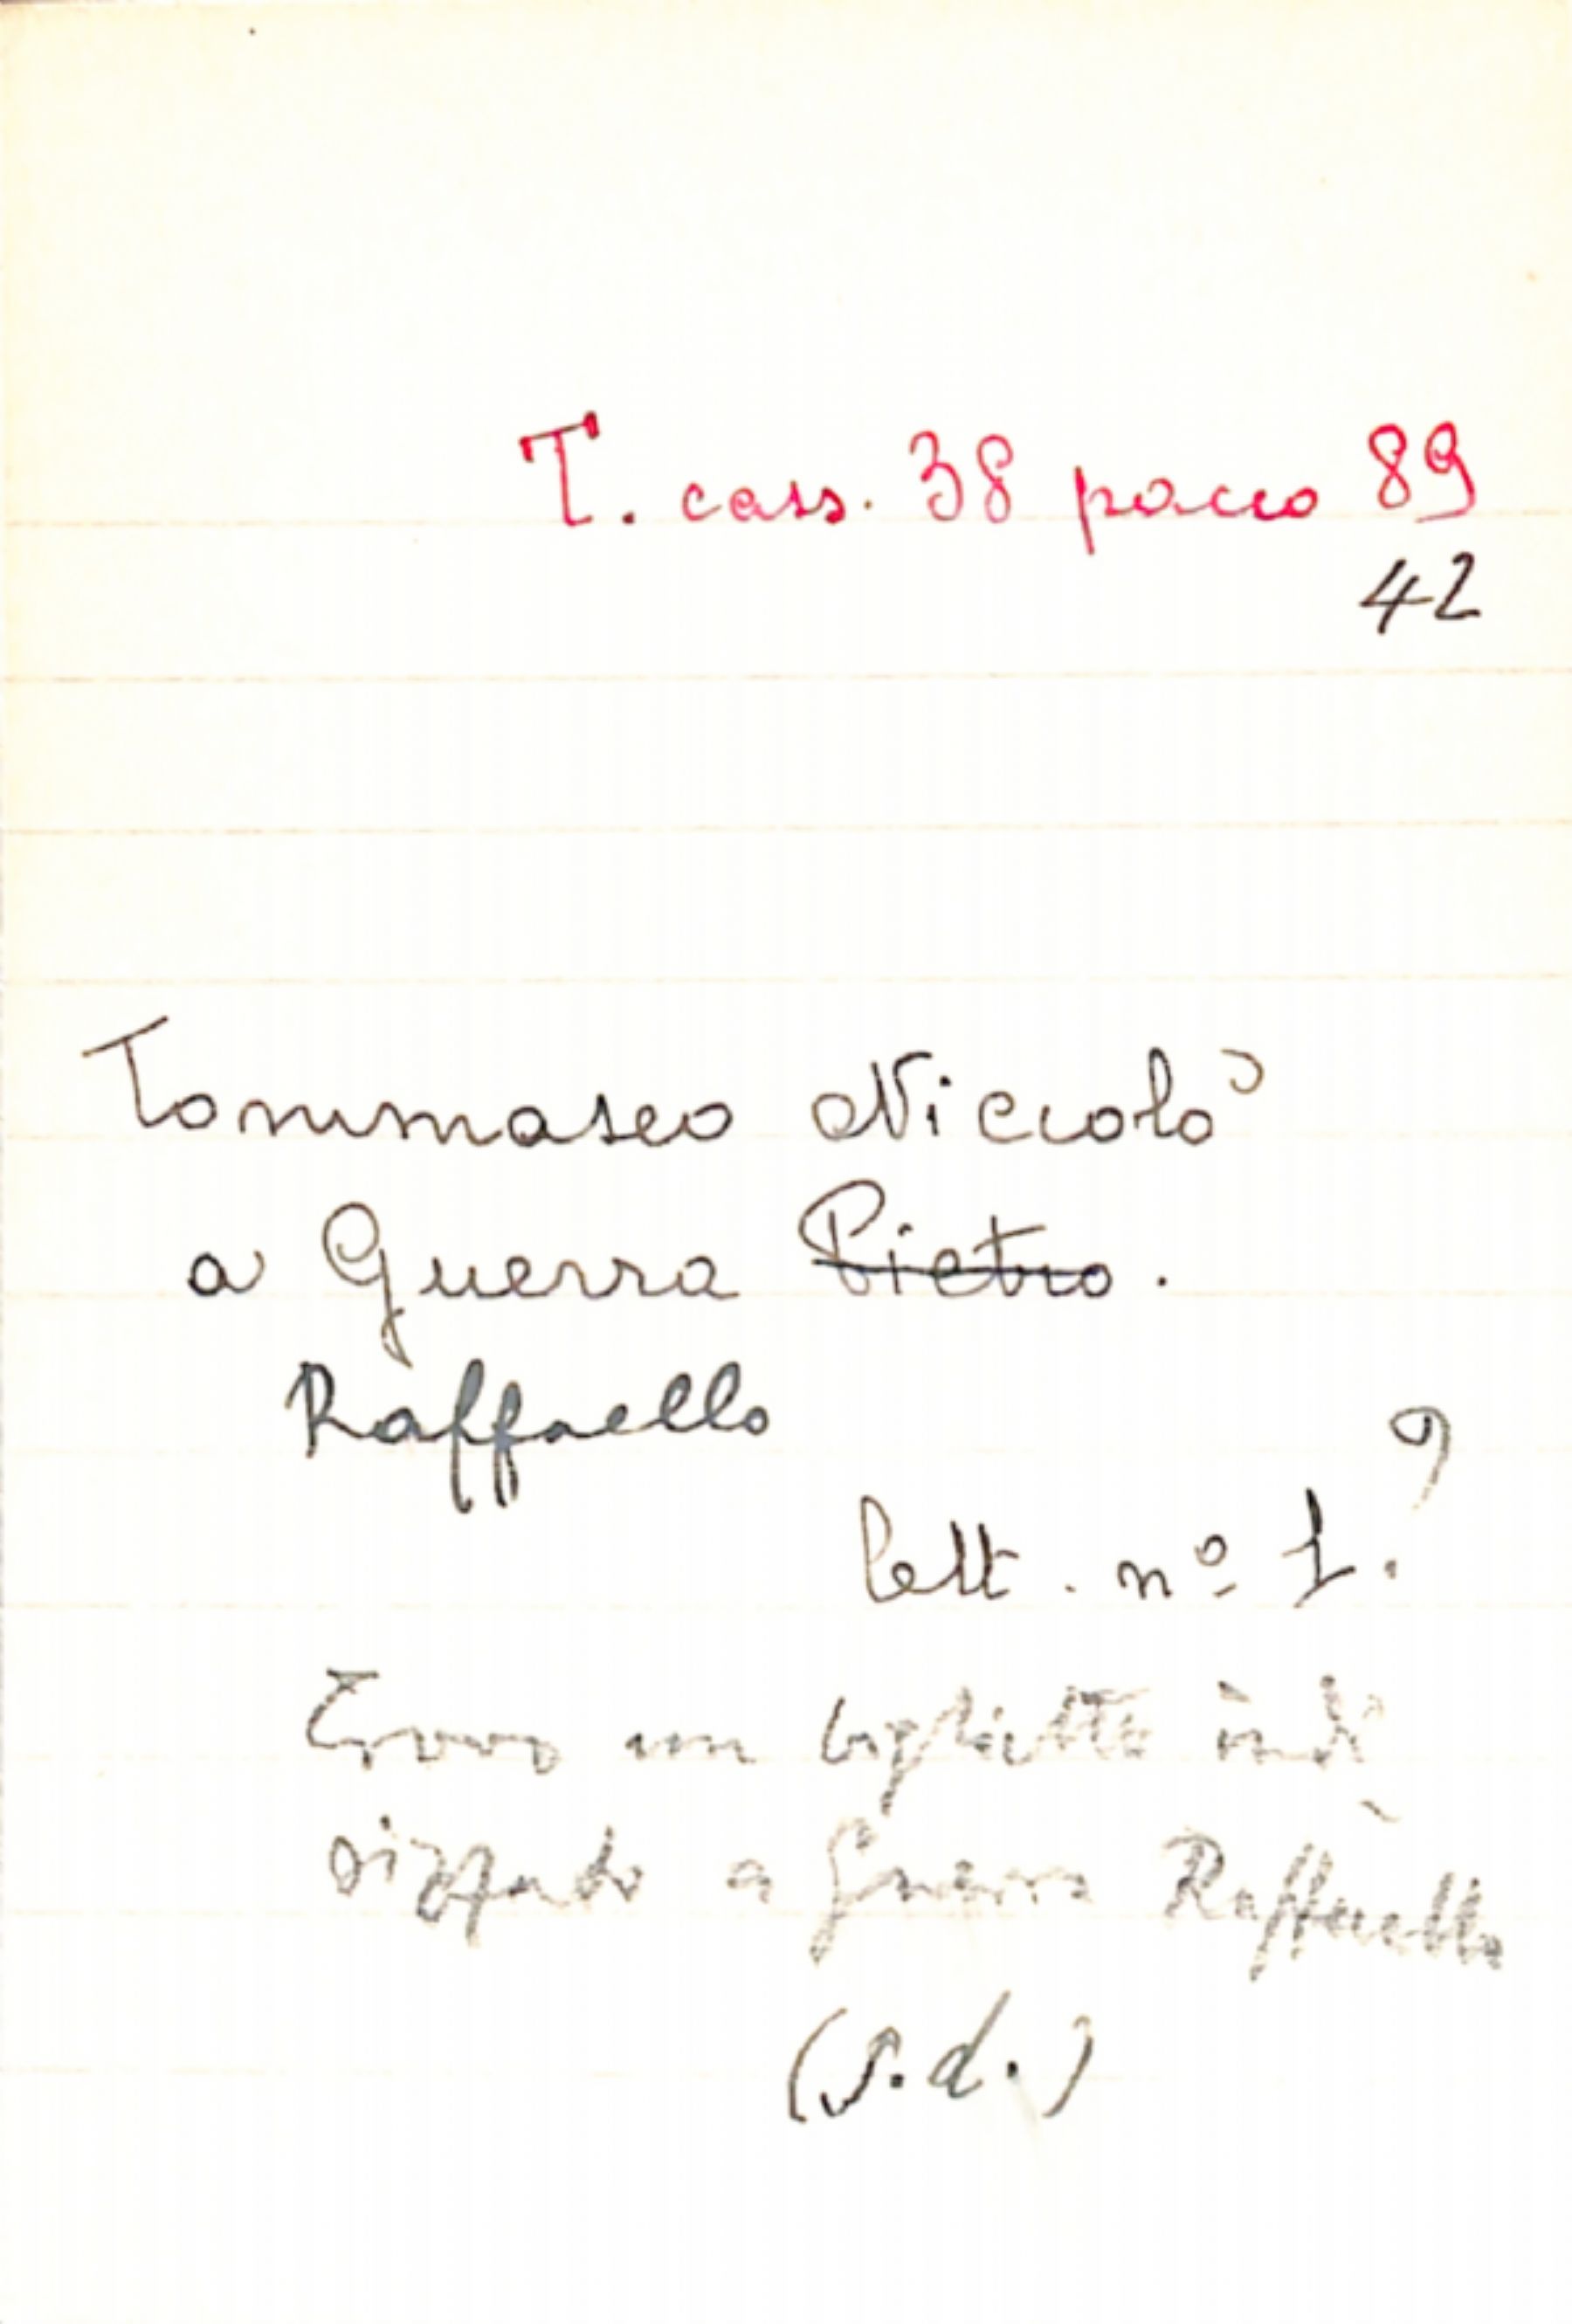 T. cass. 38 pacco 89
42
Tommaseo Niccolò
a Guerra Pietro.
Raffaello
lett. nº 1.?
Trovo un biglietto indi
rizzato a Guerra Raffaello
(s.d.)